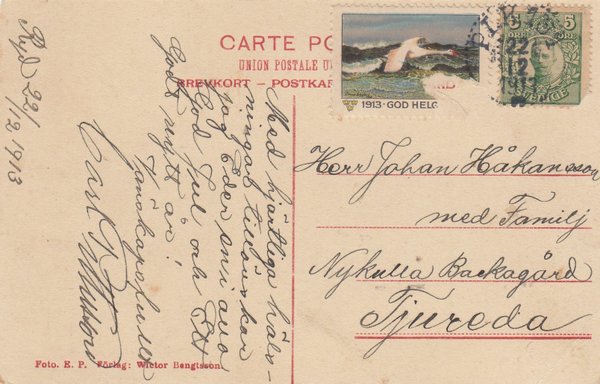 CARTE PO
UNION POSTALE U
BREVKORT – POSTKAR
1913 · GOD HELG
5 5
ÖRE
22
12
Ryd 22/
/12 1913
Med hjärtliga häls-
ningar tillönskar
jag Eder
God Jul och Ett
Godt nytt år!
Carl
Herr Johan Håkansson
med Familj
Nykulla Backagård
Tjureda
Foto. E. P. Förlag: Wictor Bengtsson.